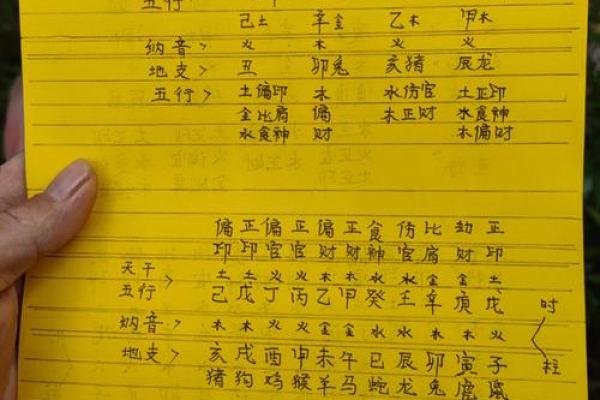 五行>
己土 辛金 乙木 甲木
纳音> 火 木 火 火
地支> 丑 卯兔 亥猪 辰龙
五行> 土偏印 木 水伤官 土正印
金比肩 偏 木正财 水食神
水食神 财 木偏财
偏 正 偏 正 偏 正 食 伤 比 劫 正
印 印 官 官 财 财 神 官 肩 财 印
天干 > 土 土 火 火 木 木 水 水 金 金 土
五行 己 戊 丁 丙 乙 甲 癸 壬 辛 庚 戊 时
纳音> 木 木 火 火 金 金 水 水 木 木 火
地支 > 亥 戌 酉 申 未 午 巳 辰 卯 寅 子 柱
猪 狗 鸡 猴 羊 马 蛇 龙 兔 虎 鼠